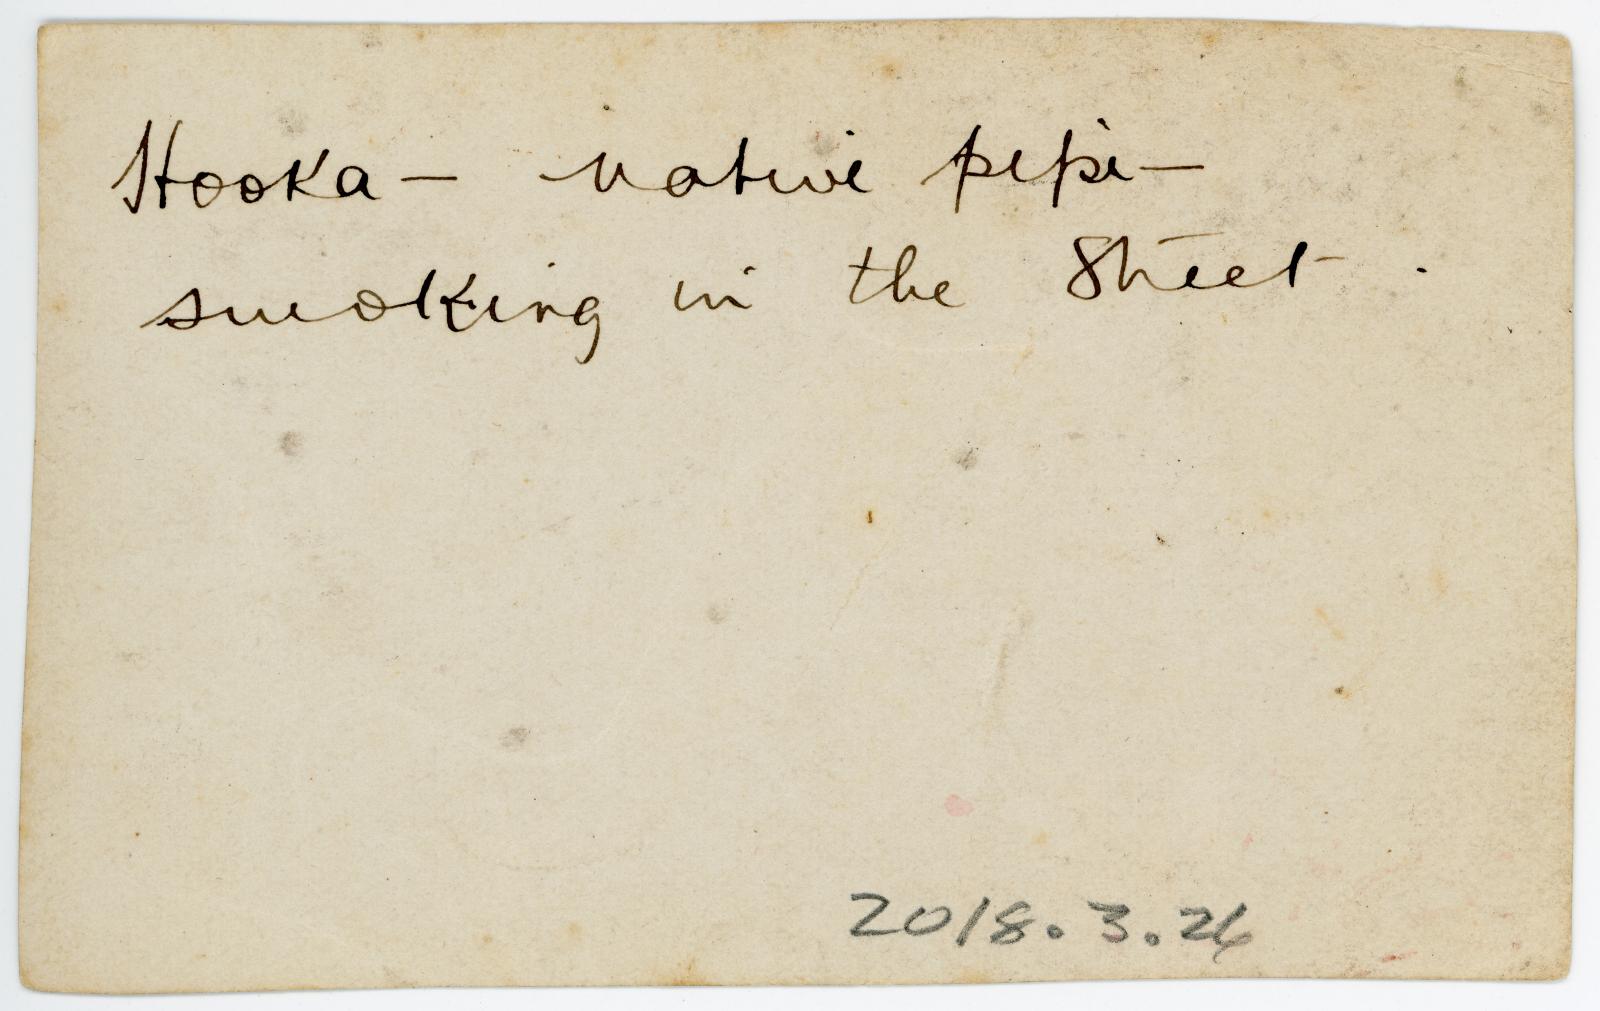 Hooka – native pipe –
smoking in the Street .
2018.3.26